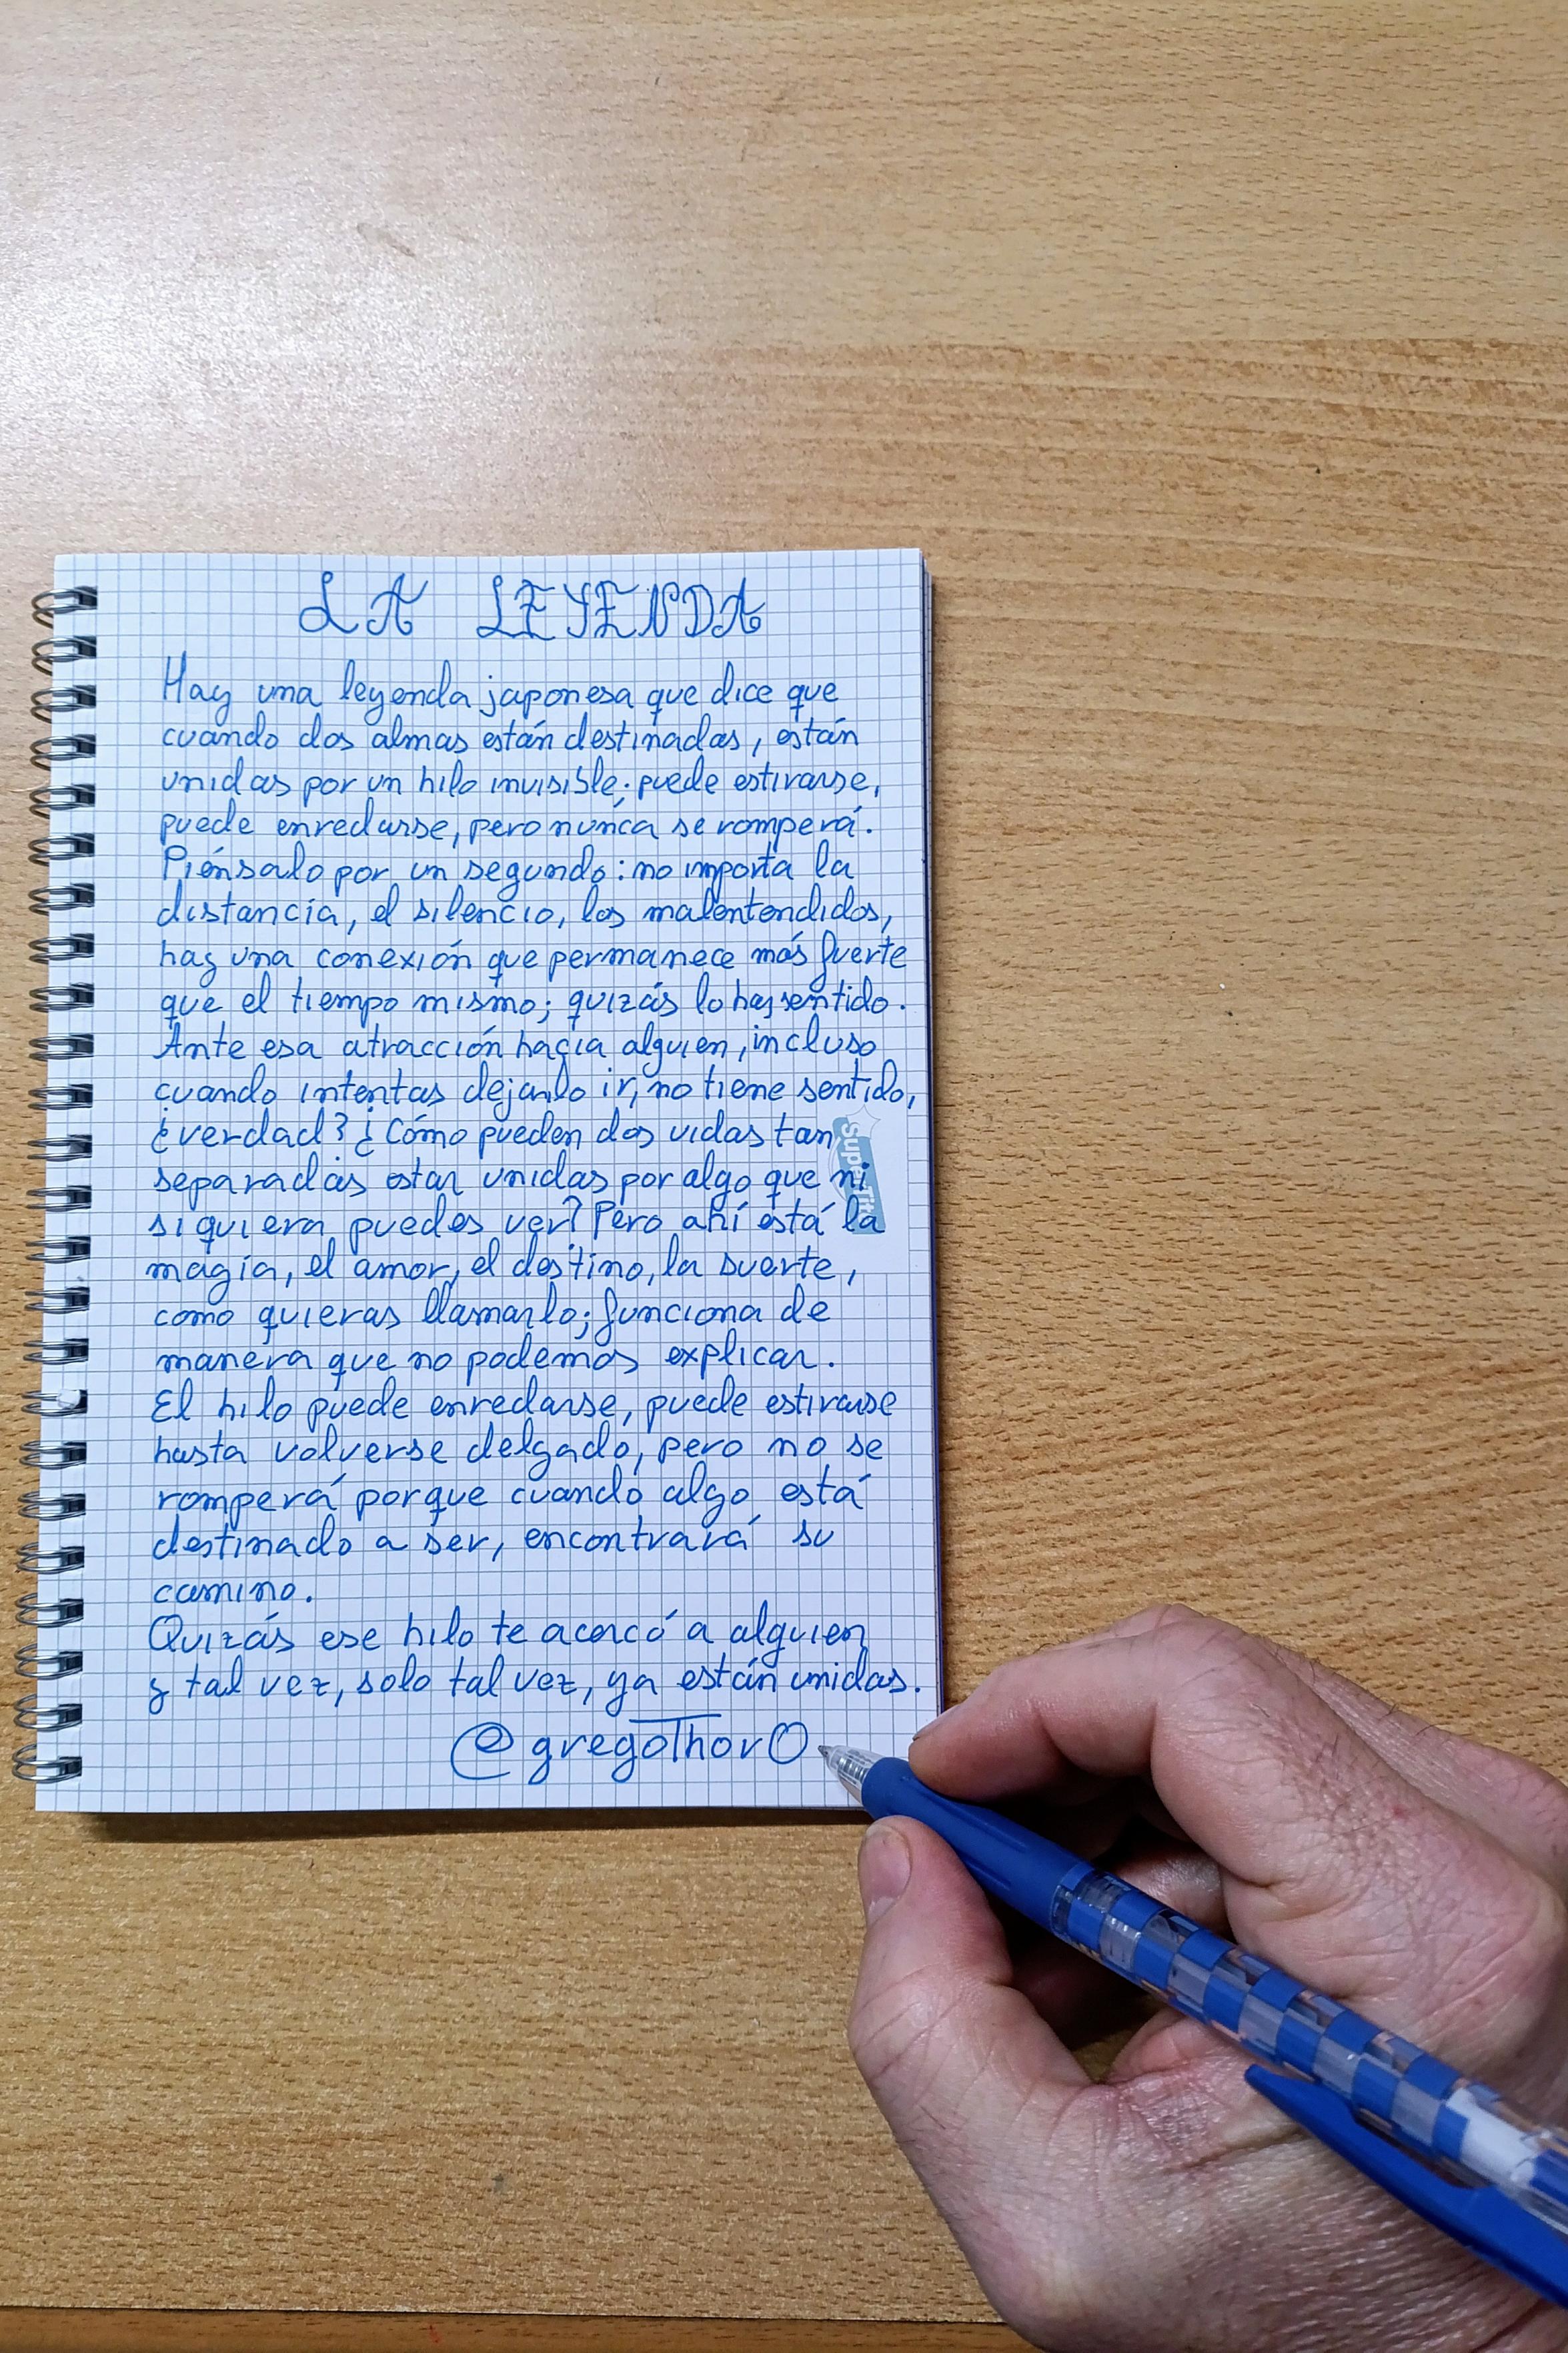 LA LEYENDA
Hay una leyenda japonesa que dice que
cuando dos almas están destinadas, están
unidas por un hilo invisible; puede estirarse,
puede enredarse, pero nunca se romperá.
Piénsalo por un segundo: no importa la
distancia, el silencio, los malentendidos,
hay una conexión que permanece más fuerte
que el tiempo mismo; quizás lo hay sentido.
Ante esa atracción hacia alguien, incluso
cuando intentas dejarlo ir, no tiene sentido,
¿verdad? ¿Cómo pueden dos vidas tan
separadas estar unidas por algo que ni
siquiera puedes ver? Pero ahí está la
magia, el amor, el destino, la suerte,
como quieras llamarlo; funciona de
manera que no podemos explicar.
El hilo puede enredarse, puede estirarse
hasta volverse delgado, pero no se
romperá porque cuando algo está
destinado a ser, encontrará su
camino.
Quizás ese hilo te acercó a alguien
y tal vez, solo tal vez, ya están unidas.
@gregoThorO